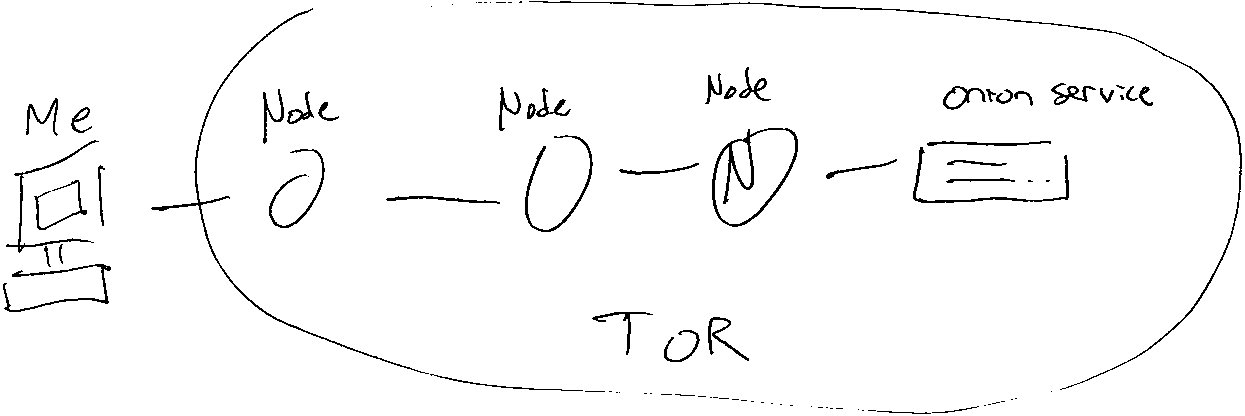 Me
Node
Node
Node
onion service
N
TOR